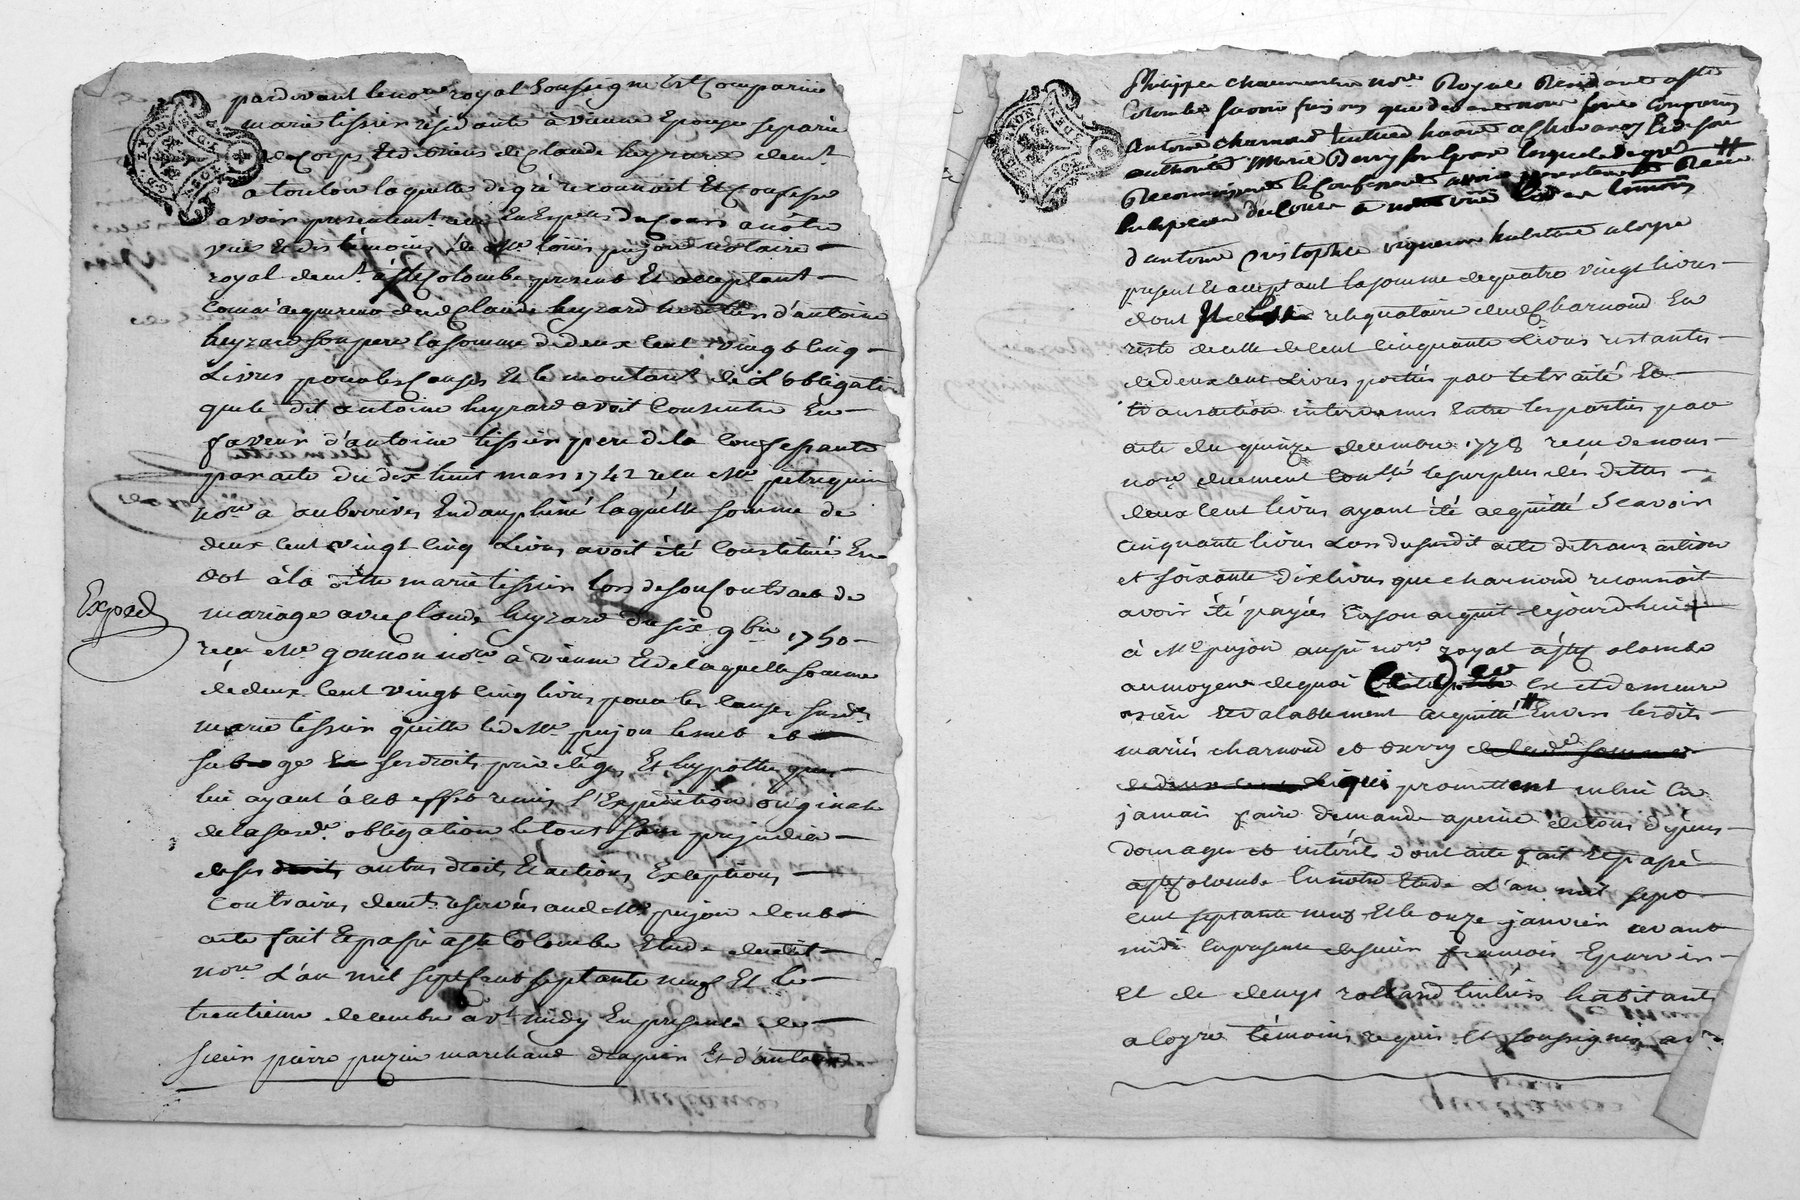 GD. LYON
pardevant le nore. royal soussigné est comparüe
marie tissier résidante à vienne Epouse separée
de corps et de biens de Claude heyrard demt.
a toulon laquelle de gré reconnoit Et confesse
avoir presentemt. reçu En Especes du cours a nôtre
vue et des témoins de Me. loüis pujon notaire
royal demt. à ste Colombe present Et acceptant
comm' acquereur dud Claude heyrard heritier d'antoine
heyrard son pere la somme de deux cent vingt cinq
Livres pour les causes Et le montant de L'obligation
que le dit antoine heyrard avoit consentie En
faveur d'antoine tissier pere de la confessante
par acte du dix huit mars 1742 reçu Me. petrequin
nore a auberrives En dauphiné laquelle somme de
deux cent vingt cinq Livres avoit été constituée En
dot à la dite marie tissier lors de son contract de
mariage avec Claude heyrard du six 9bre 1750
reçu Me. gonnon nore à vienne Et de laquelle somme
de deux cent vingt cinq livres pour les causes susdes.
marie tissier quitte led Me. pujon le met et
subroge En ses droits, privilèges, Et hypotheques
lui ayant à cet effet remis l'Expédition originale
de la susde. obligation le tout sans prejudice
de ses droits autres droits Et actions, Exceptions
contraires demt. reservées aud Me. pujon dont
acte fait Et passé a ste Colombe Etude dudit
nore. L'an mil sept cent septante neuf Et le
trentieme decembre avt midy En presence de
sieur pierre puzin marchand drapier Et d'antoine
Exped
GD. LYON
Philippe chaumartin nore. Royal Residant a ste
Colombe savoir faisons que devant nous sont comparus
Antoine charnaud
authorité Marie Berry son Epouse lesquels de gré #
Reconnoissent Et Confessent avoir presentement Recu
En Especes de Cours a notre vüe Et des temoins
d'antoine Cristophle vigneron habitant a loyre
present Et acceptant la somme de quatre vingt livres
dont il reliquataire aud Charnoud En
reste de celle de cent cinquante Livres restantes
de deux cent Livres portées par le traité Et
transaction intervenus Entre les parties par
acte du quinze decembre 1778 reçu de nous
nore. duement conllé le surplus des dittes
deux cent livres ayant été acquitté Scavoir
cinquante livres Lors du susdit acte de transaction
et soixante dix livres que charnoud reconnoit
avoir été payées En son acquit cejourdhui
à Me pujon aussi nore. royal à ste Colombe
au moyen de quoi led Est et demeure
bien Et valablement acquitté # Envers lesdits
mariés charnoud et berry de lade. somme
de deux cent Livres qui promettent ne lui En
jamais faire demande a peine de tous dépens
domages et intérêts dont acte fait Et passé
a ste Colombe En notre Etude L'an mil sept
cent septante neuf Et le onze janvier avant
midi En presence de sieur françois Eparvier
Et de denys rolland tuilier habitant
a loyre témoins requis Et soussignés avec